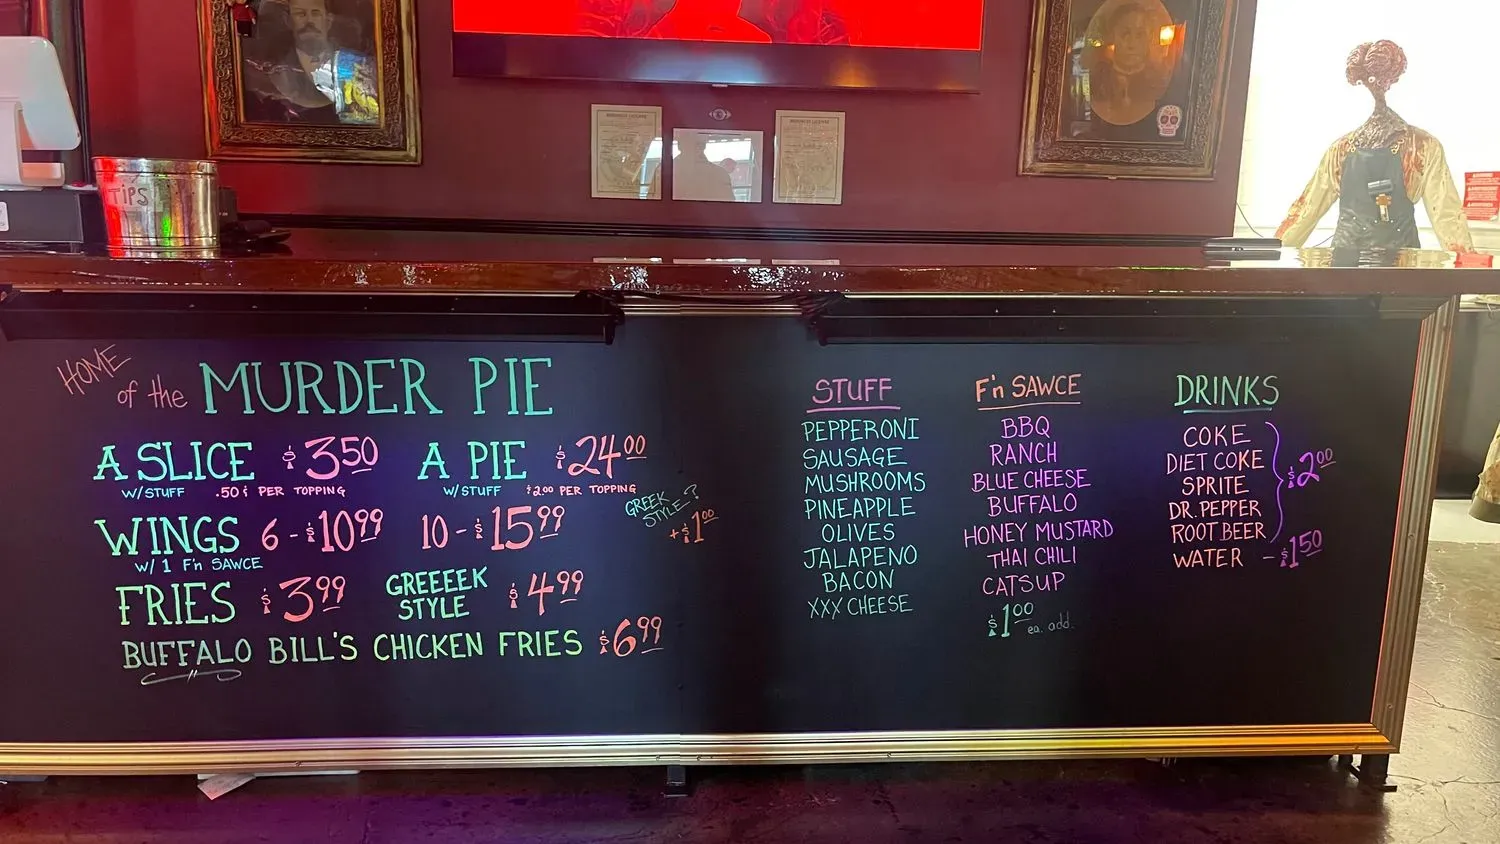 TIPS
BUSINESS LICENSE
BUSINESS LICENSE
HOME of the MURDER PIE
A SLICE $3.50
W/STUFF .50¢ PER TOPPING
A PIE $24.00
W/STUFF $2.00 PER TOPPING
WINGS 6 - $10.99 10 - $15.99
W/ 1 F'n SAWCE
GREEK STYLE?
+ $1.00
FRIES $3.99
GREEEEK
STYLE
$4.99
BUFFALO BILL'S CHICKEN FRIES $6.99
STUFF
PEPPERONI
SAUSAGE
MUSHROOMS
PINEAPPLE
OLIVES
JALAPENO
BACON
XXX CHEESE
F'n SAWCE
BBQ
RANCH
BLUE CHEESE
BUFFALO
HONEY MUSTARD
THAI CHILI
CATSUP
$1.00 ea. add.
DRINKS
COKE
DIET COKE
SPRITE
DR. PEPPER
ROOT BEER
$2.00
WATER - $1.50